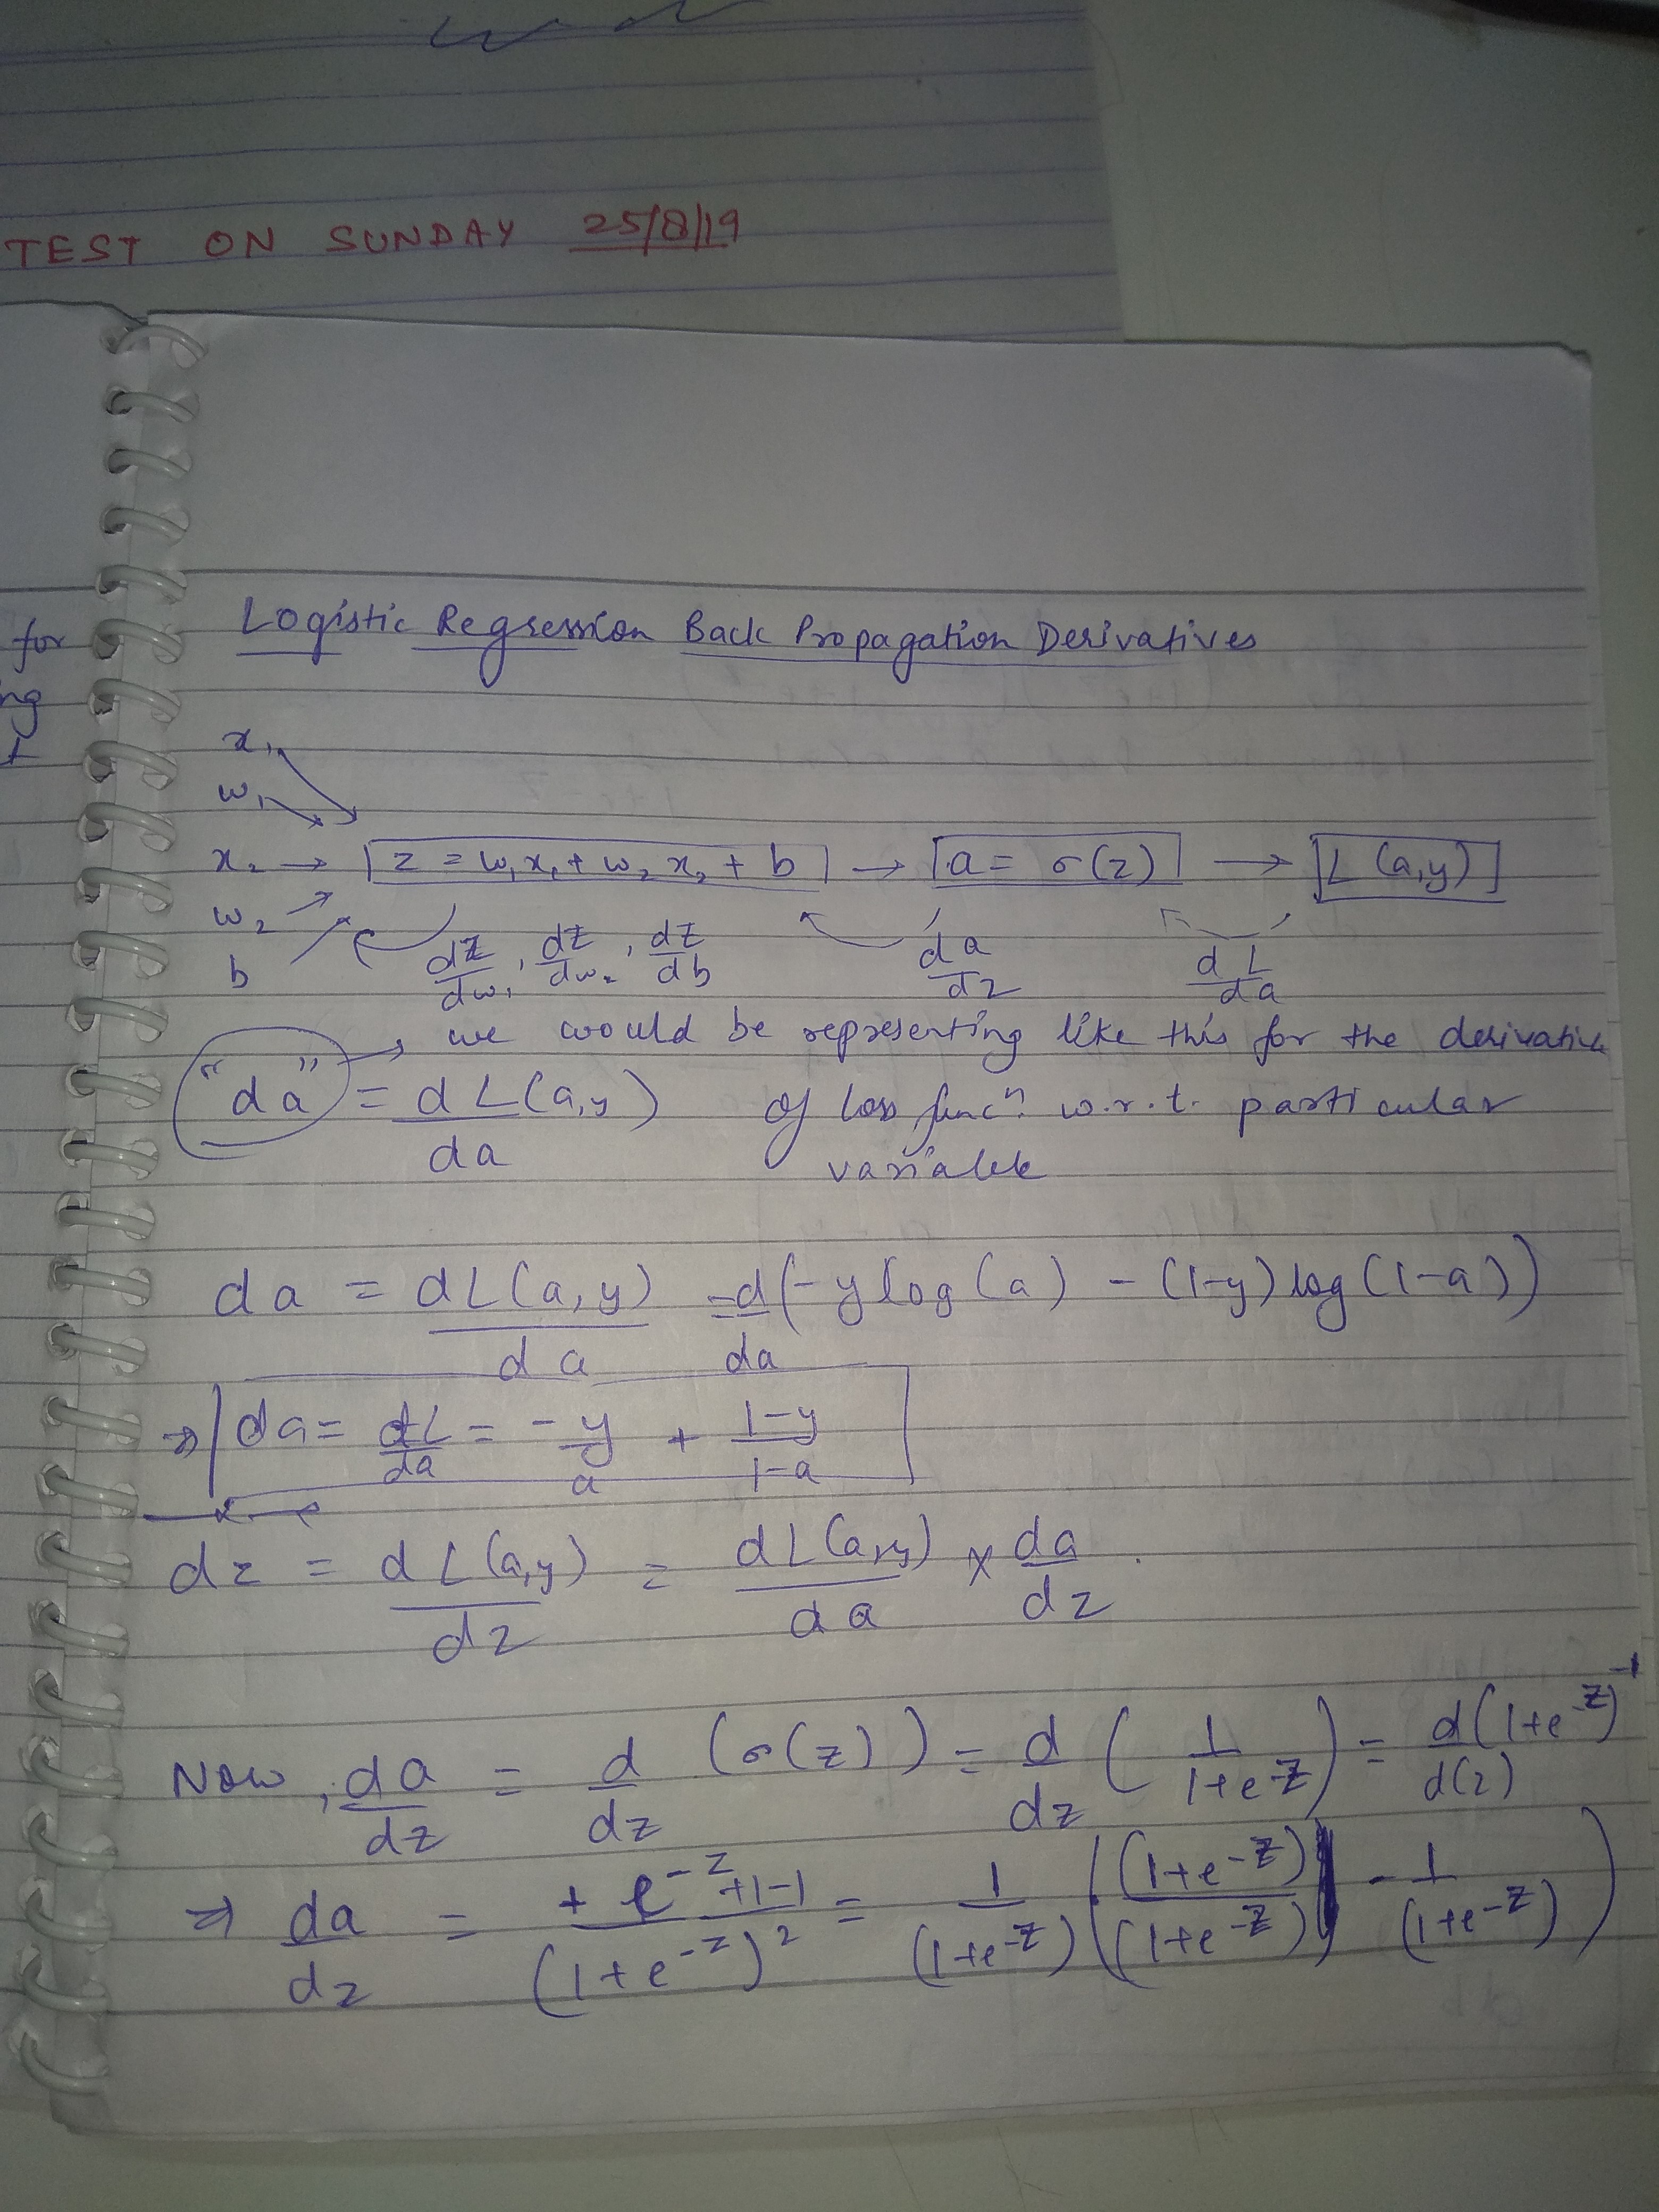 TEST ON SUNDAY 25/8/19
for
ng
Logistic Regression Back Propagation Derivatives
x₁
w₁
x₂ → z = w₁x₁ + w₂x₂ + b → a = σ(z) → L(a,y)
w₂
b
dz/dw₁, dz/dw₂, dz/db da/dz dL/da
→ we would be representing like this for the derivative
"da" = dL(a,y)/da of loss funcⁿ w.r.t. particular
variable
da = dL(a,y)/da = d/da(-y log(a) - (1-y) log(1-a))
⇒ da = dL/da = -y/a + (1-y)/(1-a)
dz = dL(a,y)/dz = dL(a,y)/da × da/dz
Now, da/dz = d/dz (σ(z)) = d/dz (1/(1+e^-z)) = d(1+e^-z)^-1/d(z)
⇒ da/dz = (+e^-z +1-1)/(1+e^-z)² = 1/(1+e^-z) ((1+e^-z)/(1+e^-z) - 1/(1+e^-z))